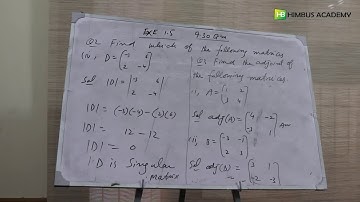 HIMBUS ACADEMY
EXE 1.5
Q2 Find which of the following matrices
(iv, D = [-3 6
2 -4]
Sol |D| = |-3 6
2 -4|
|D| = (-3)(-4) - (2)(6)
|D| = 12 - 12
|D| = 0
D is Singular
matrix
Q3 Find the adjoint of
the following matrices.
(i, A = [1 2
3 4]
Sol adj(A) = [4 -2
-3 1] Ans
(ii, B =
2 3
Sol adj(B) = [3 1
-2 -3]